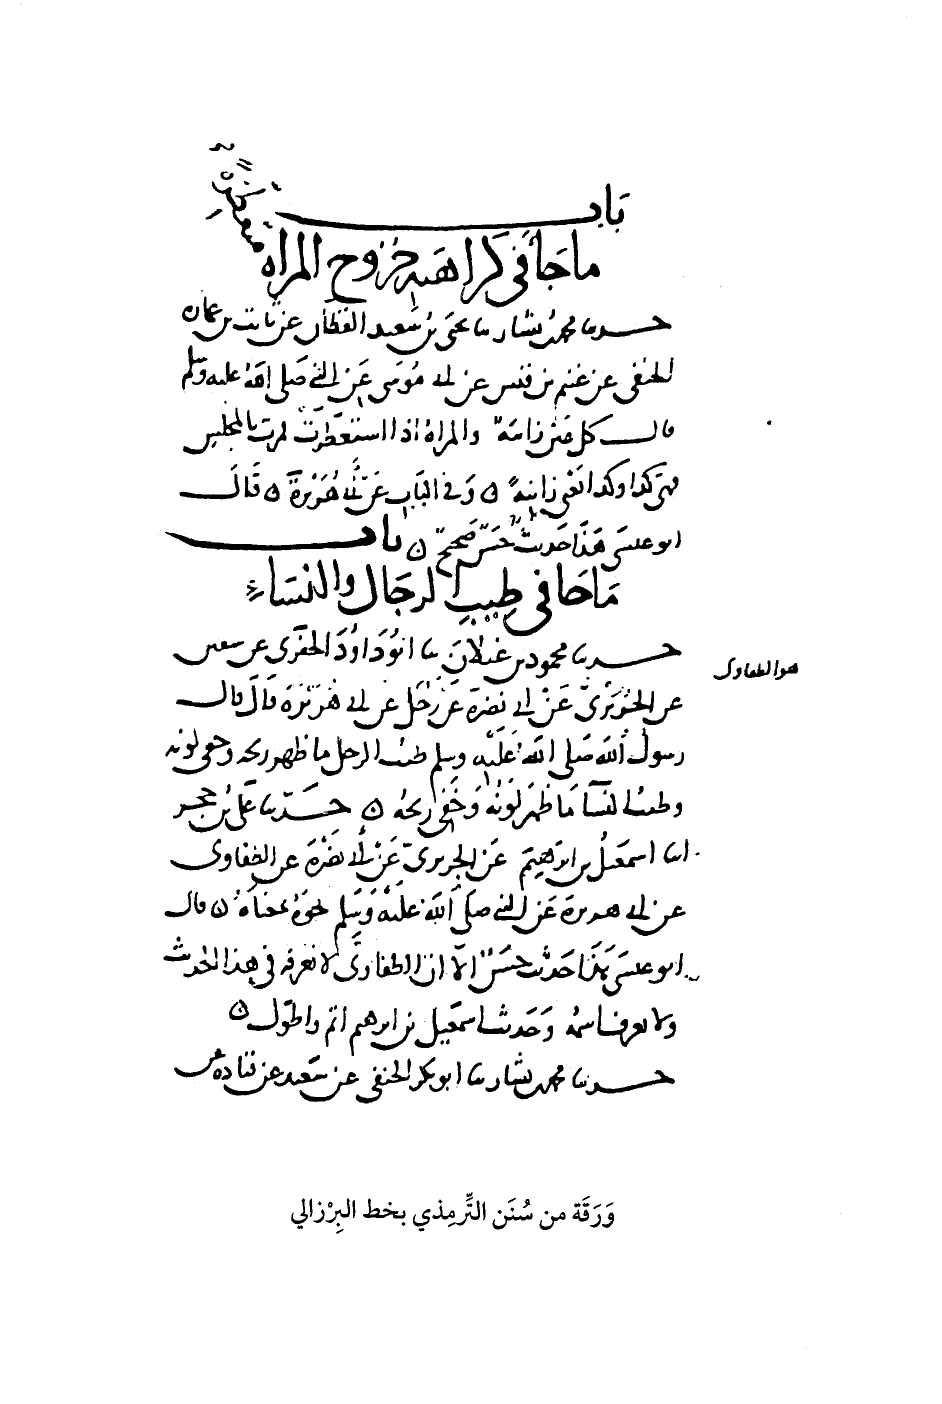 باب
ما جاء في كراهية خروج المرأة متعطرة
حدثنا محمد بن بشار نا يحيى بن سعيد القطان عن ثابت بن عمارة
الحنفي عن غنيم بن قيس عن ابي موسى عن النبي صلى الله عليه وسلم
قال كل عين زانية والمرأة اذا استعطرت فمرت بالمجلس
فهي كذا وكذا يعني زانية ٥ وفي الباب عن ابي هريرة ٥ قال
ابو عيسى هذا حديث حسن صحيح ٥ باب
ما جا في طيب الرجال والنساء
حدثنا محمود بن غيلان نا ابو داود الحفري عن سفين
عن الجريري عن ابي نضرة عن رجل عن ابي هريرة قال قال
رسول الله صلى الله عليه وسلم طيب الرجل ما ظهر ريحه وخفي لونه
وطيب النسا ما ظهر لونه وخفي ريحه ٥ حدثنا علي بن حجر
انا اسمعيل بن ابرهيم عن الجريري عن ابي نضرة عن الطفاوي
عن ابي هريرة عن النبي صلى الله عليه وسلم نحوه بمعناه ٥ قال
ابو عيسى هذا حديث حسن الا ان الطفاوي لا نعرفه في هذا الحديث
ولا يعرف اسمه وحديث اسمعيل بن ابرهيم اتم واطول ٥
حدثنا محمد بن بشار نا ابو بكر الحنفي عن سعيد عن قتادة عن
هو الطفاوي
وَرَقَة من سُنَن التِّرمِذي بخط البِرْزالي